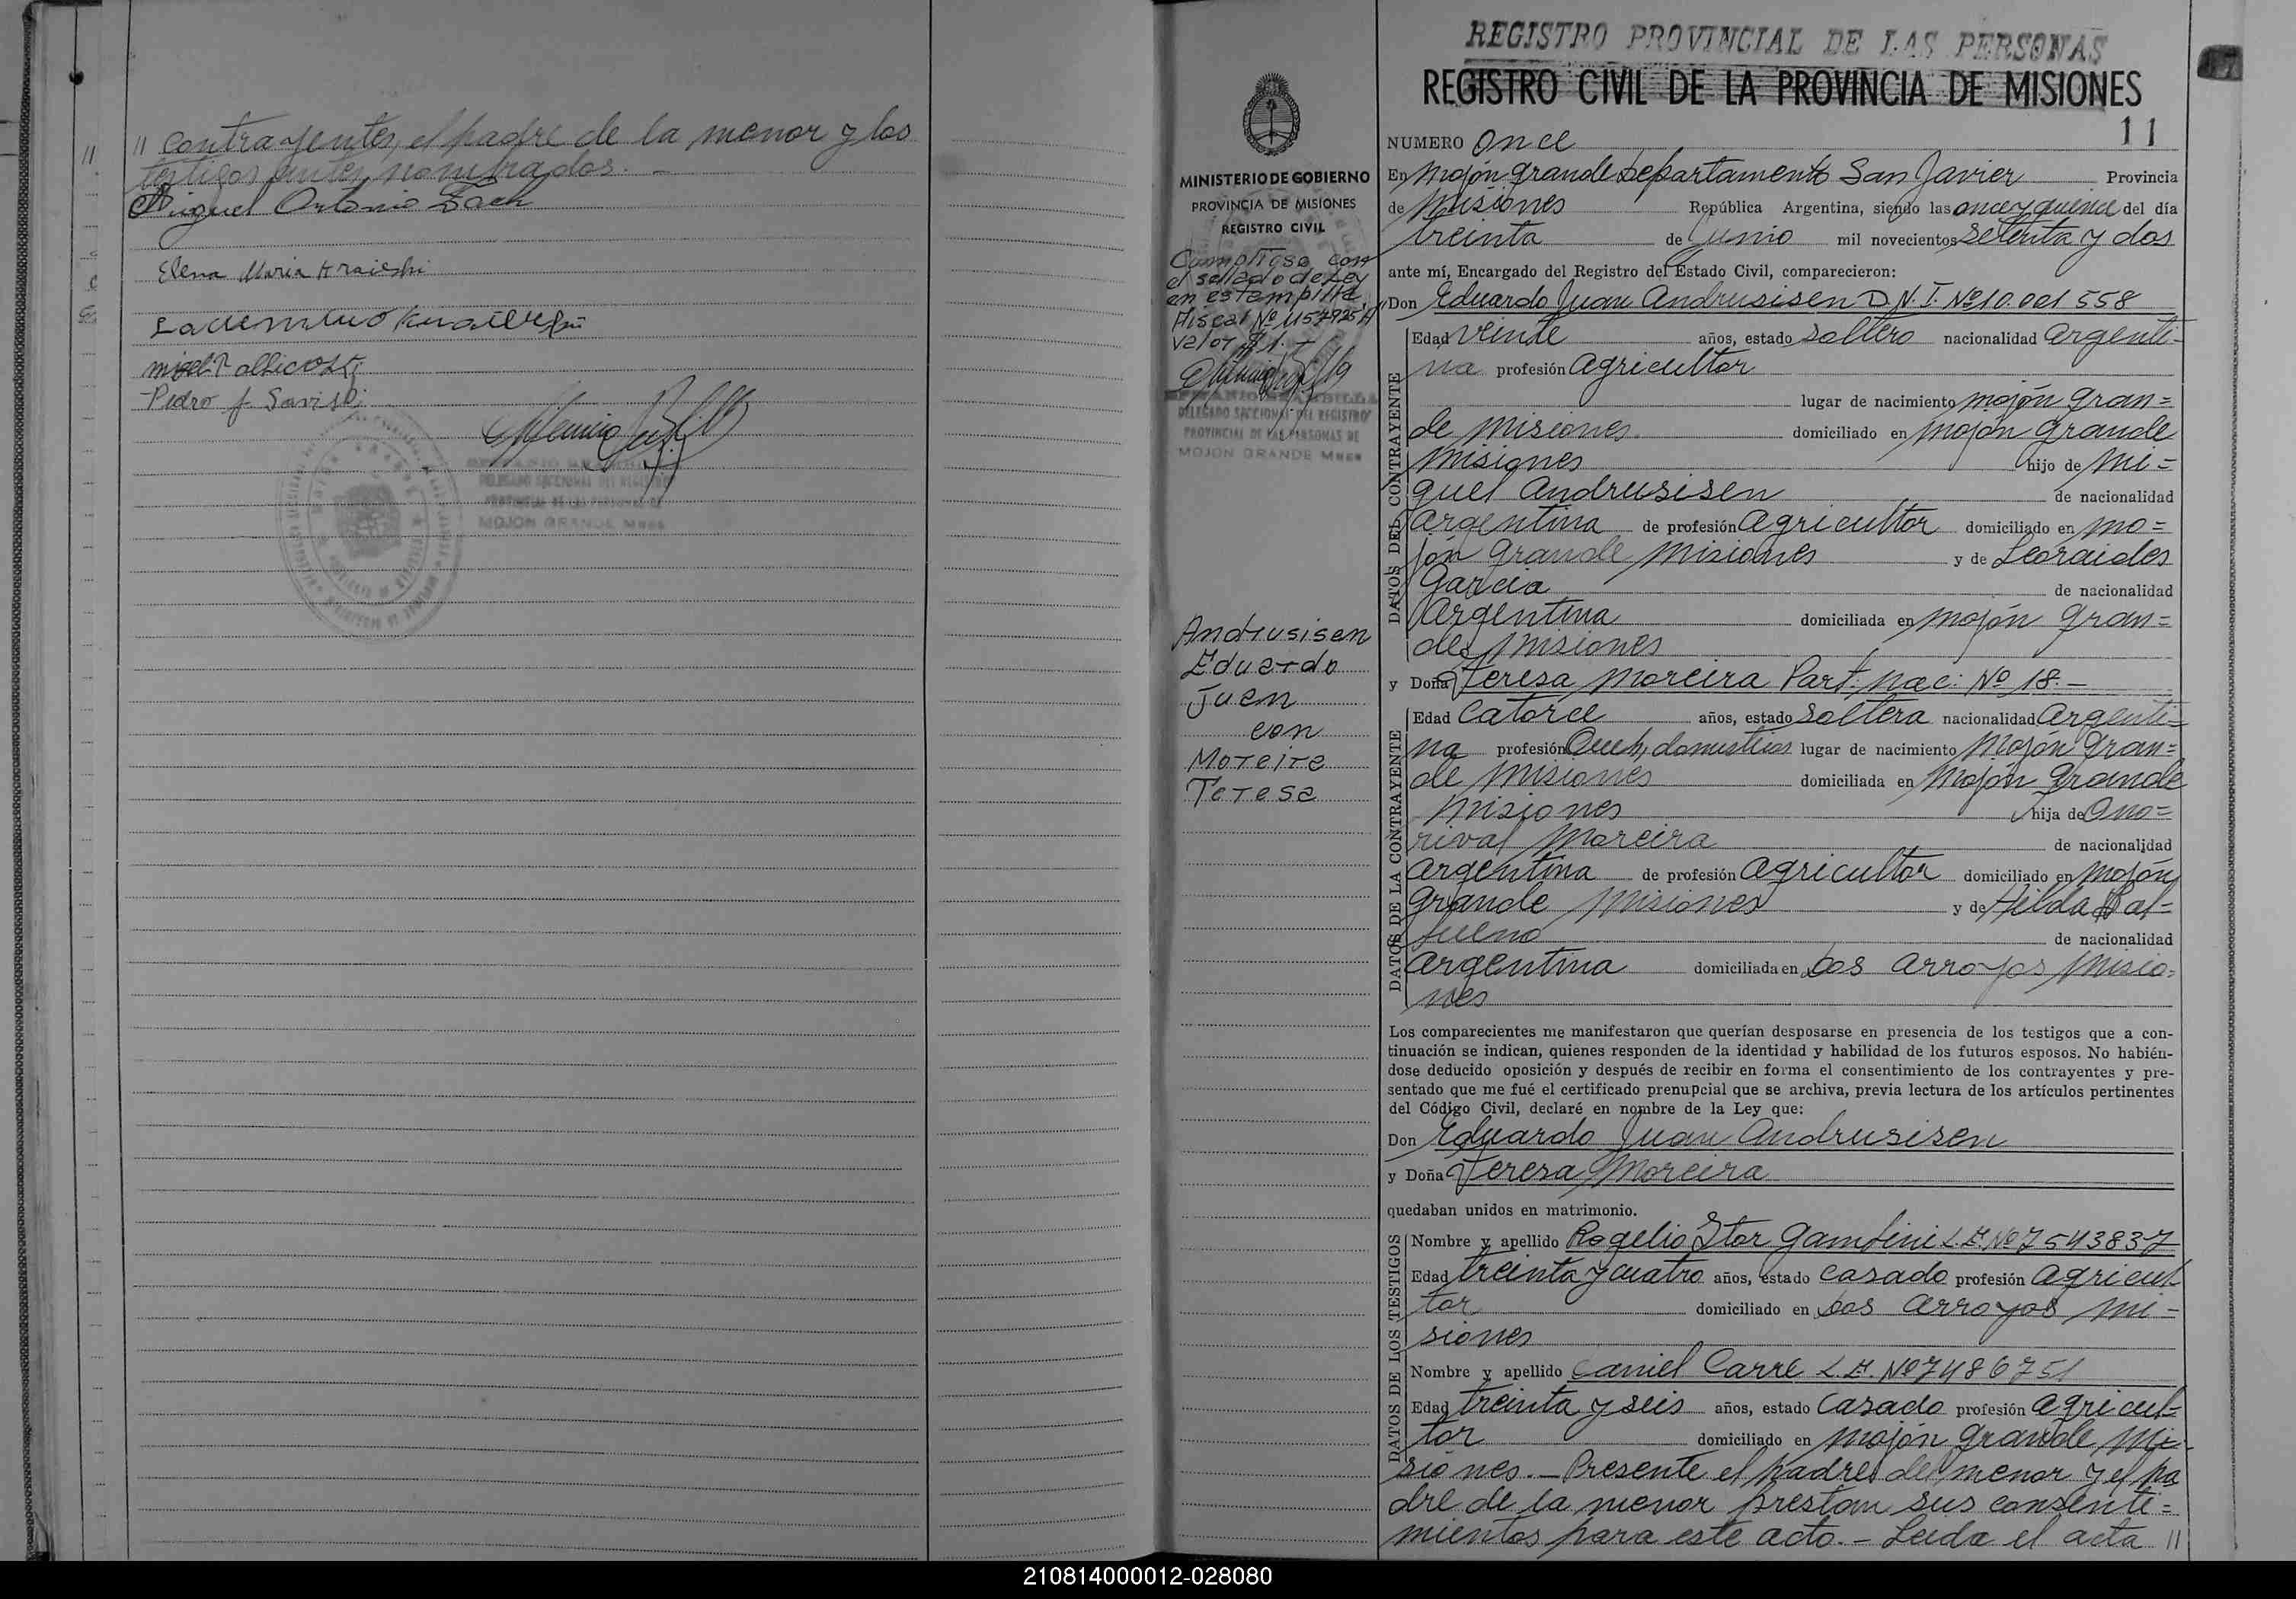 " contrayentes, el padre de la menor y los
testigos antes nombrados. -
Miguel Antonio
Elena Maria
Pedro J.
MOJON GRANDE Mnes
MINISTERIO DE GOBIERNO
PROVINCIA DE MISIONES
REGISTRO CIVIL
Cumplióse con
el sellado de Ley
en estampilla
fiscal Nº
Valor $ 1. -
DELEGADO SECCIONAL DEL REGISTRO
PROVINCIAL DE LAS PERSONAS DE
MOJON GRANDE Mnes
Andrusisen
Eduardo
Juan
con
Moreira
Teresa
REGISTRO PROVINCIAL DE LAS PERSONAS
REGISTRO CIVIL DE LA PROVINCIA DE MISIONES
NUMERO once 11
En Mojón grande Departamento San Javier Provincia
de Misiones República Argentina, siendo las once y quince del día
treinta de Junio mil novecientos setenta y dos
ante mí, Encargado del Registro del Estado Civil, comparecieron:
Don Eduardo Juan Andrusisen D.N.I. Nº10.001558
DATOS DEL CONTRAYENTE
Edad veinte años, estado soltero nacionalidad argenti-
na profesión agricultor
lugar de nacimiento mojón gran=
de Misiones. domiciliado en mojón grande
Misiones hijo de Mi=
guel Andrusisen de nacionalidad
argentina de profesión agricultor domiciliado en mo=
jón grande Misiones y de Leoraides
Garcia de nacionalidad
argentina domiciliada en mojón gran=
de, Misiones
y Doña Teresa Moreira Part. nac: Nº 18.-
DATOS DE LA CONTRAYENTE
Edad catorce años, estado soltera nacionalidad argenti=
na profesión Queh, domesticos lugar de nacimiento Mojón gran=
de Misiones domiciliada en Mojón grande
Misiones hija de Ono=
rival Moreira de nacionalidad
argentina de profesión agricultor domiciliado en Mojón
grande Misiones y de Hilda Bal=
bueno de nacionalidad
argentina domiciliada en Los arroyos Misio=
nes
Los comparecientes me manifestaron que querían desposarse en presencia de los testigos que a con-
tinuación se indican, quienes responden de la identidad y habilidad de los futuros esposos. No habién-
dose deducido oposición y después de recibir en forma el consentimiento de los contrayentes y pre-
sentado que me fué el certificado prenupcial que se archiva, previa lectura de los artículos pertinentes
del Código Civil, declaré en nombre de la Ley que:
Don Eduardo Juan Andrusisen
y Doña Teresa Moreira
quedaban unidos en matrimonio.
DATOS DE LOS TESTIGOS
Nombre y apellido Rogelio Itor Gambini L.E.Nº7543837
Edad treinta y cuatro años, estado casado profesión agricul
tor domiciliado en Los arroyos Mi-
siones
Nombre y apellido Daniel Carre L.E. Nº7486751
Edad treinta y seis años, estado casado profesión agricul=
tor domiciliado en mojón grande Mi-
siones. - Presente el padre del menor y el pa
dre de la menor prestan sus consenti=
mientos para este acto. - Leída el acta "
210814000012-028080